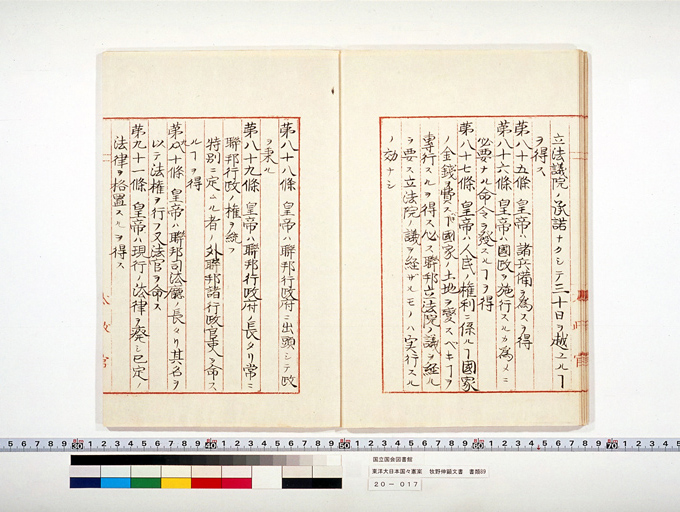 立法議院ノ承諾ナクシテ三十日ヲ越ユルヿ
ヲ得ス
第八十五條 皇帝ハ諸兵備ヲ為スヲ得
第八十六條 皇帝ハ國政ヲ施行スルカ為メニ
必要ナル命令ヲ發スルヿヲ得
第八十七條 皇帝ハ人民ノ權利ニ係ルヿ國家
ノ金錢ヲ費スヿ國家ノ土地ヲ変スベキヿヲ
專行スルヲ得ス必ス聯邦立法院ノ議ヲ經ル
ヲ要ス立法院ノ議ヲ経ザルモノハ実行スル
ノ効ナシ
第八十八條 皇帝ハ聯邦行政府ニ出頭シテ政
ヲ秉ル
第八十九條 皇帝ハ聯邦行政府ノ長タリ常ニ
聯邦行政ノ權ヲ統フ
特別ニ定ムル者ノ外聯邦諸行政官吏ヲ命ス
ルヿヲ得
第九十條 皇帝ハ聯邦司法廳ノ長タリ其名ヲ
以テ法権ヲ行フ又法官ヲ命ス
第九十一條 皇帝ハ現行ノ法律ヲ廃シ已定ノ
法律ヲ格置スルヲ得ス
太政官
5 6 7 8 9 30 1 2 3 4 5 6 7 8 9 40 1 2 3 4 5 6 7 8 9 50 1 2 3 4 5 6 7 8 9 60 1 2 3 4 5 6 7 8 9 70 1 2 3 4
国立国会図書館
東洋大日本国々憲案 牧野伸顕文書 書類69
20-017